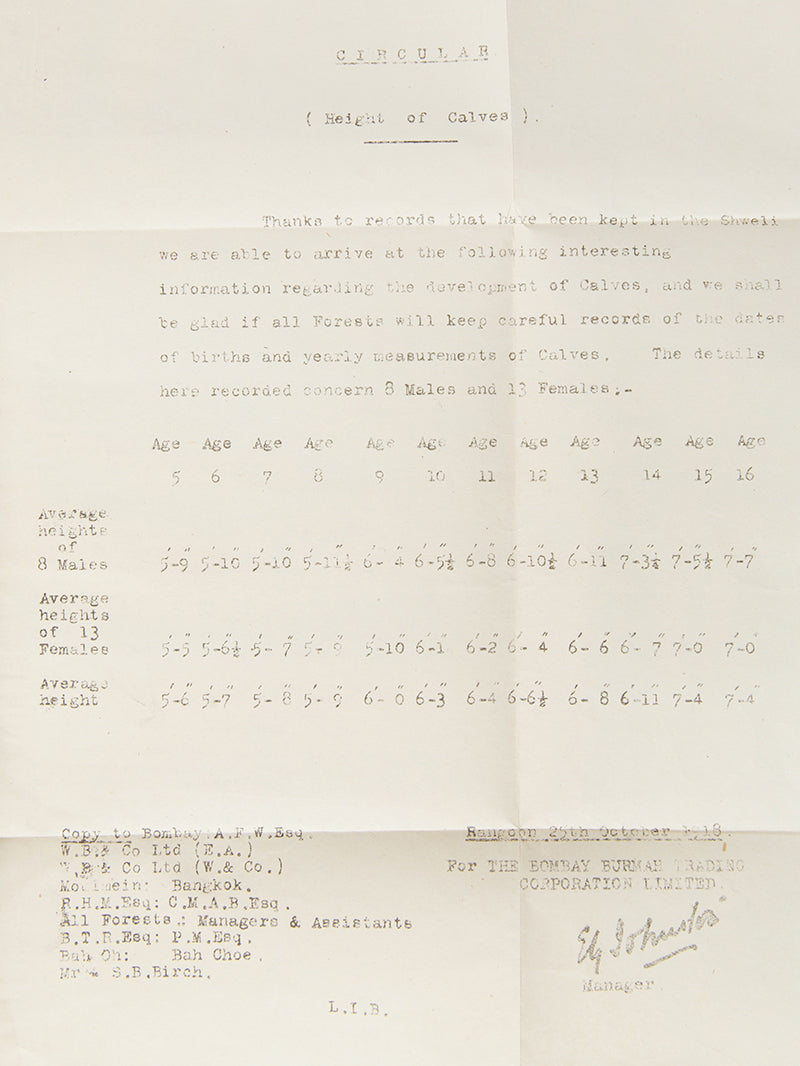 CIRCULAR
( Height of Calves ).
Thanks to records that have been kept in the Shweli
we are able to arrive at the following interesting
information regarding the development of Calves, and we shall
be glad if all Forests will keep careful records of the dates
of births and yearly measurements of Calves. The details
here recorded concern 8 Males and 13 Females;-
Age Age Age Age Age Age Age Age Age Age Age Age
5 6 7 8 9 10 11 12 13 14 15 16
Average
heights
of
' " ' " ' " ' " ' " ' " ' " ' " ' " ' " ' " ' "
8 Males 5-9 5-10 5-10 5-11½ 6- 4 6-5½ 6-8 6-10½ 6-11 7-3¼ 7-5½ 7-7
Average
heights
of 13
' " ' " ' " ' " ' " ' " ' " ' " ' " ' " ' " ' "
Females 5-5 5-6½ 5- 7 5- 9 5-10 6-1 6-2 6- 4 6- 6 6- 7 7-0 7-0
Average
' " ' " ' " ' " ' " ' " ' " ' " ' " ' " ' " ' "
height 5-6 5-7 5- 8 5- 9 6- 0 6-3 6-4 6-6½ 6- 8 6-11 7-4 7-4
Copy to Bombay: A.F.W.Esq.
W.B.& Co Ltd (E.A.)
W.B.& Co Ltd (W.& Co.)
Moulmein: Bangkok.
R.H.M.Esq: C.M.A.B.Esq.
All Forests.: Managers & Assistants
B.T.R.Esq: P.M.Esq.
Bah Oh: Bah Choe.
Mr S.B.Birch.
L.I.B.
Rangoon 25th October 18.
For THE BOMBAY BURMAH TRADING
CORPORATION LIMITED.
Manager.